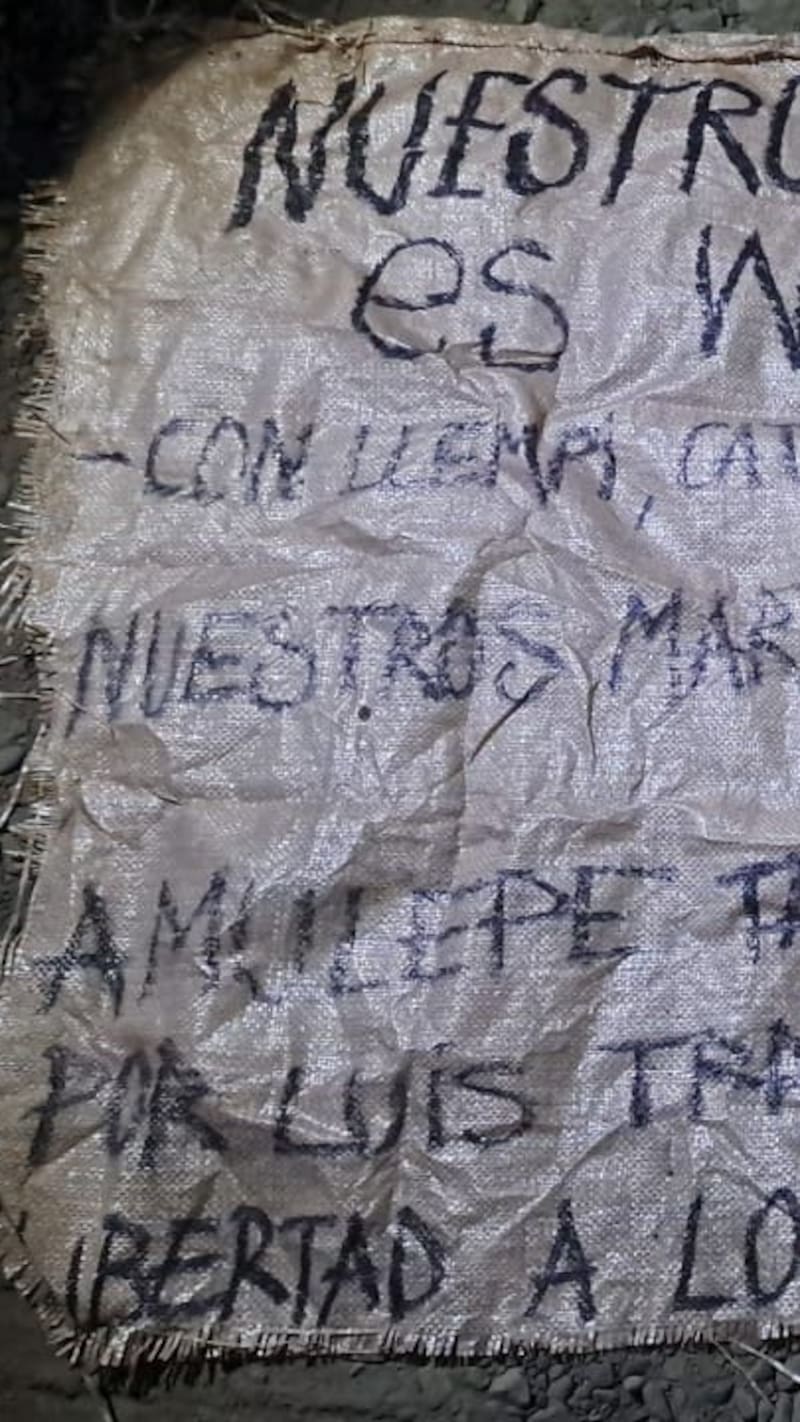 NUESTRO
es N
-CON LLEMPI, CAT
NUESTROS MAR
AMULEPE TA
POR LUIS TRA
IBERTAD A LO